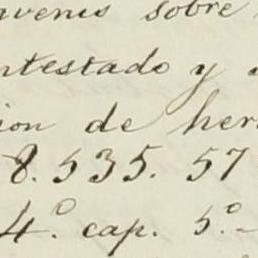 sobre
ntestado y
ion de her
8.535.57
4.º cap. 5.º